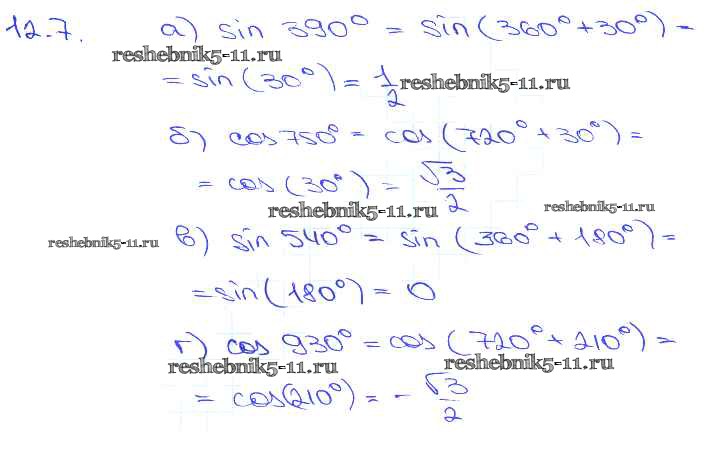 12.7. а) sin 390° = sin(360° + 30°) =
reshebnik5-11.ru
= sin(30°) = 1/2 reshebnik5-11.ru
б) cos 750° = cos(720° + 30°) =
= cos(30°) = √3/2
reshebnik5-11.ru reshebnik5-11.ru
reshebnik5-11.ru в) sin 540° = sin(360° + 180°) =
= sin(180°) = 0
г) cos 930° = cos(720° + 210°) =
reshebnik5-11.ru reshebnik5-11.ru
= cos(210°) = - √3/2